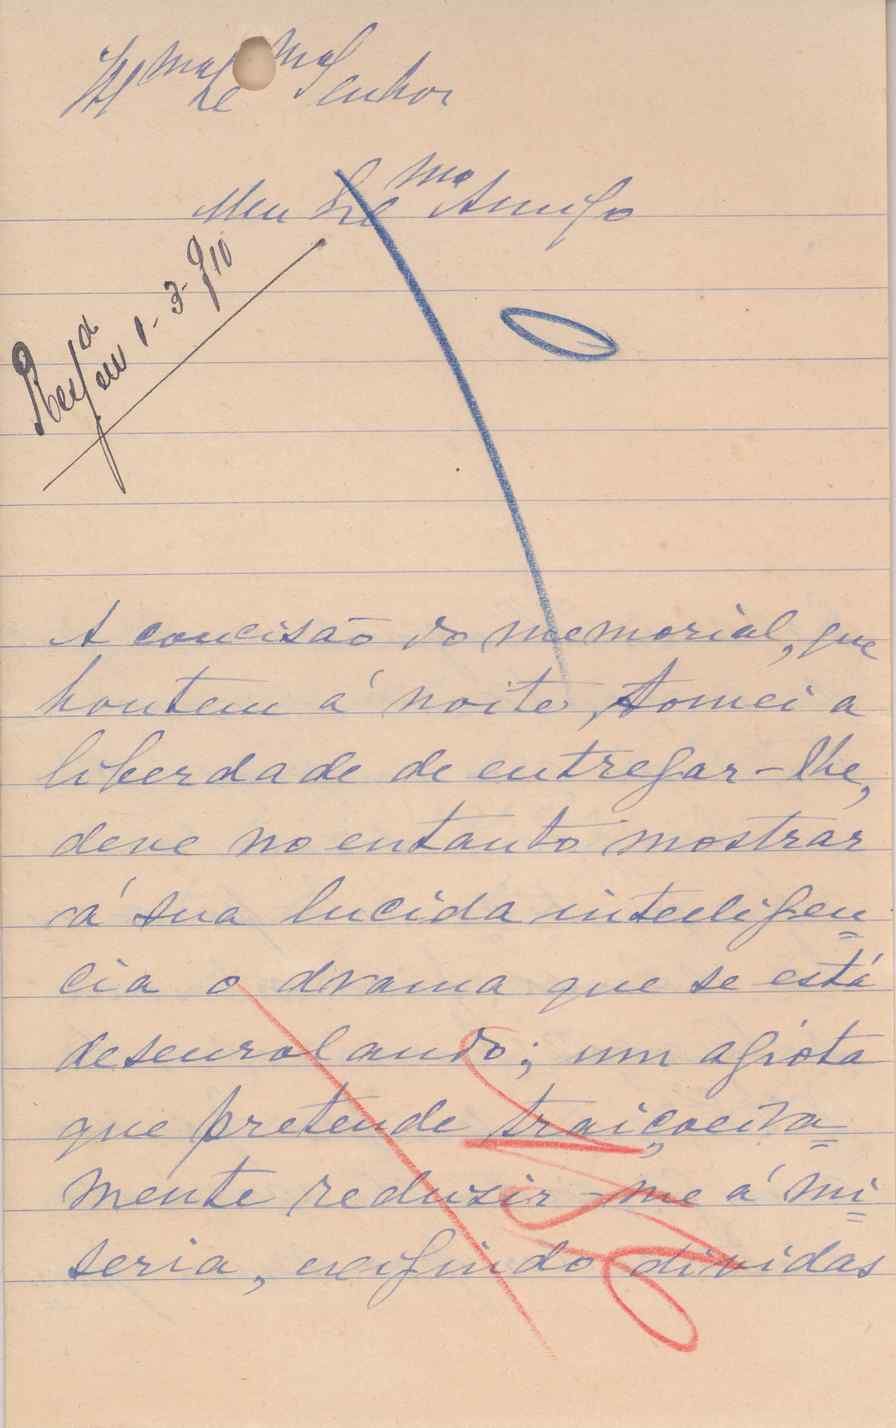 Ill^mo Ex^mo Senhor
Meu Ex^mo Amigo
Resp^da em 1-3-910
A concisão do memorial, que
hontem á noite, tomei a
liberdade de entregar-lhe,
deve no entanto mostrar
á sua lucida intelligen=
cia o drama que se está
desenrolando; um agiota
que pretende traiçoeira=
mente reduzir-me á mi=
seria, exigindo dividas